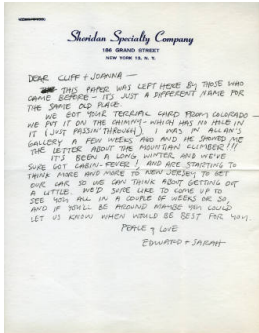 Sheridan Specialty Company
186 GRAND STREET
NEW YORK 13, N. Y.
DEAR CLIFF + JOANNA —
THIS PAPER WAS LEFT HERE BY THOSE WHO
CAME BEFORE — IT'S JUST A DIFFERENT NAME FOR
THE SAME OLD PLACE.
WE GOT YOUR TERRIAL CARD FROM COLORADO —
WE PUT IT ON THE CHIMNY — WHICH HAS NO HOLE IN
IT (JUST PASSIN' THROUGH). I WAS IN ALLAN'S
GALLERY A FEW WEEKS AGO AND HE SHOWED ME
THE LETTER ABOUT THE MOUNTIAN CLIMBER!!!
IT'S BEEN A LONG WINTER AND WE'VE
SURE GOT CABIN-FEVER! AND ARE STARTING TO
THINK MORE AND MORE TO NEW JERSEY TO GET
OUR CAR SO WE CAN THINK ABOUT GETTING OUT
A LITTLE. WE'D SURE LIKE TO COME UP TO
SEE YOU ALL IN A COUPLE OF WEEKS OR SO,
AND IF YOU'LL BE AROUND MAYBE YOU COULD
LET US KNOW WHEN WOULD BE BEST FOR YOU.
PEACE + LOVE
EDWARD + SARAH